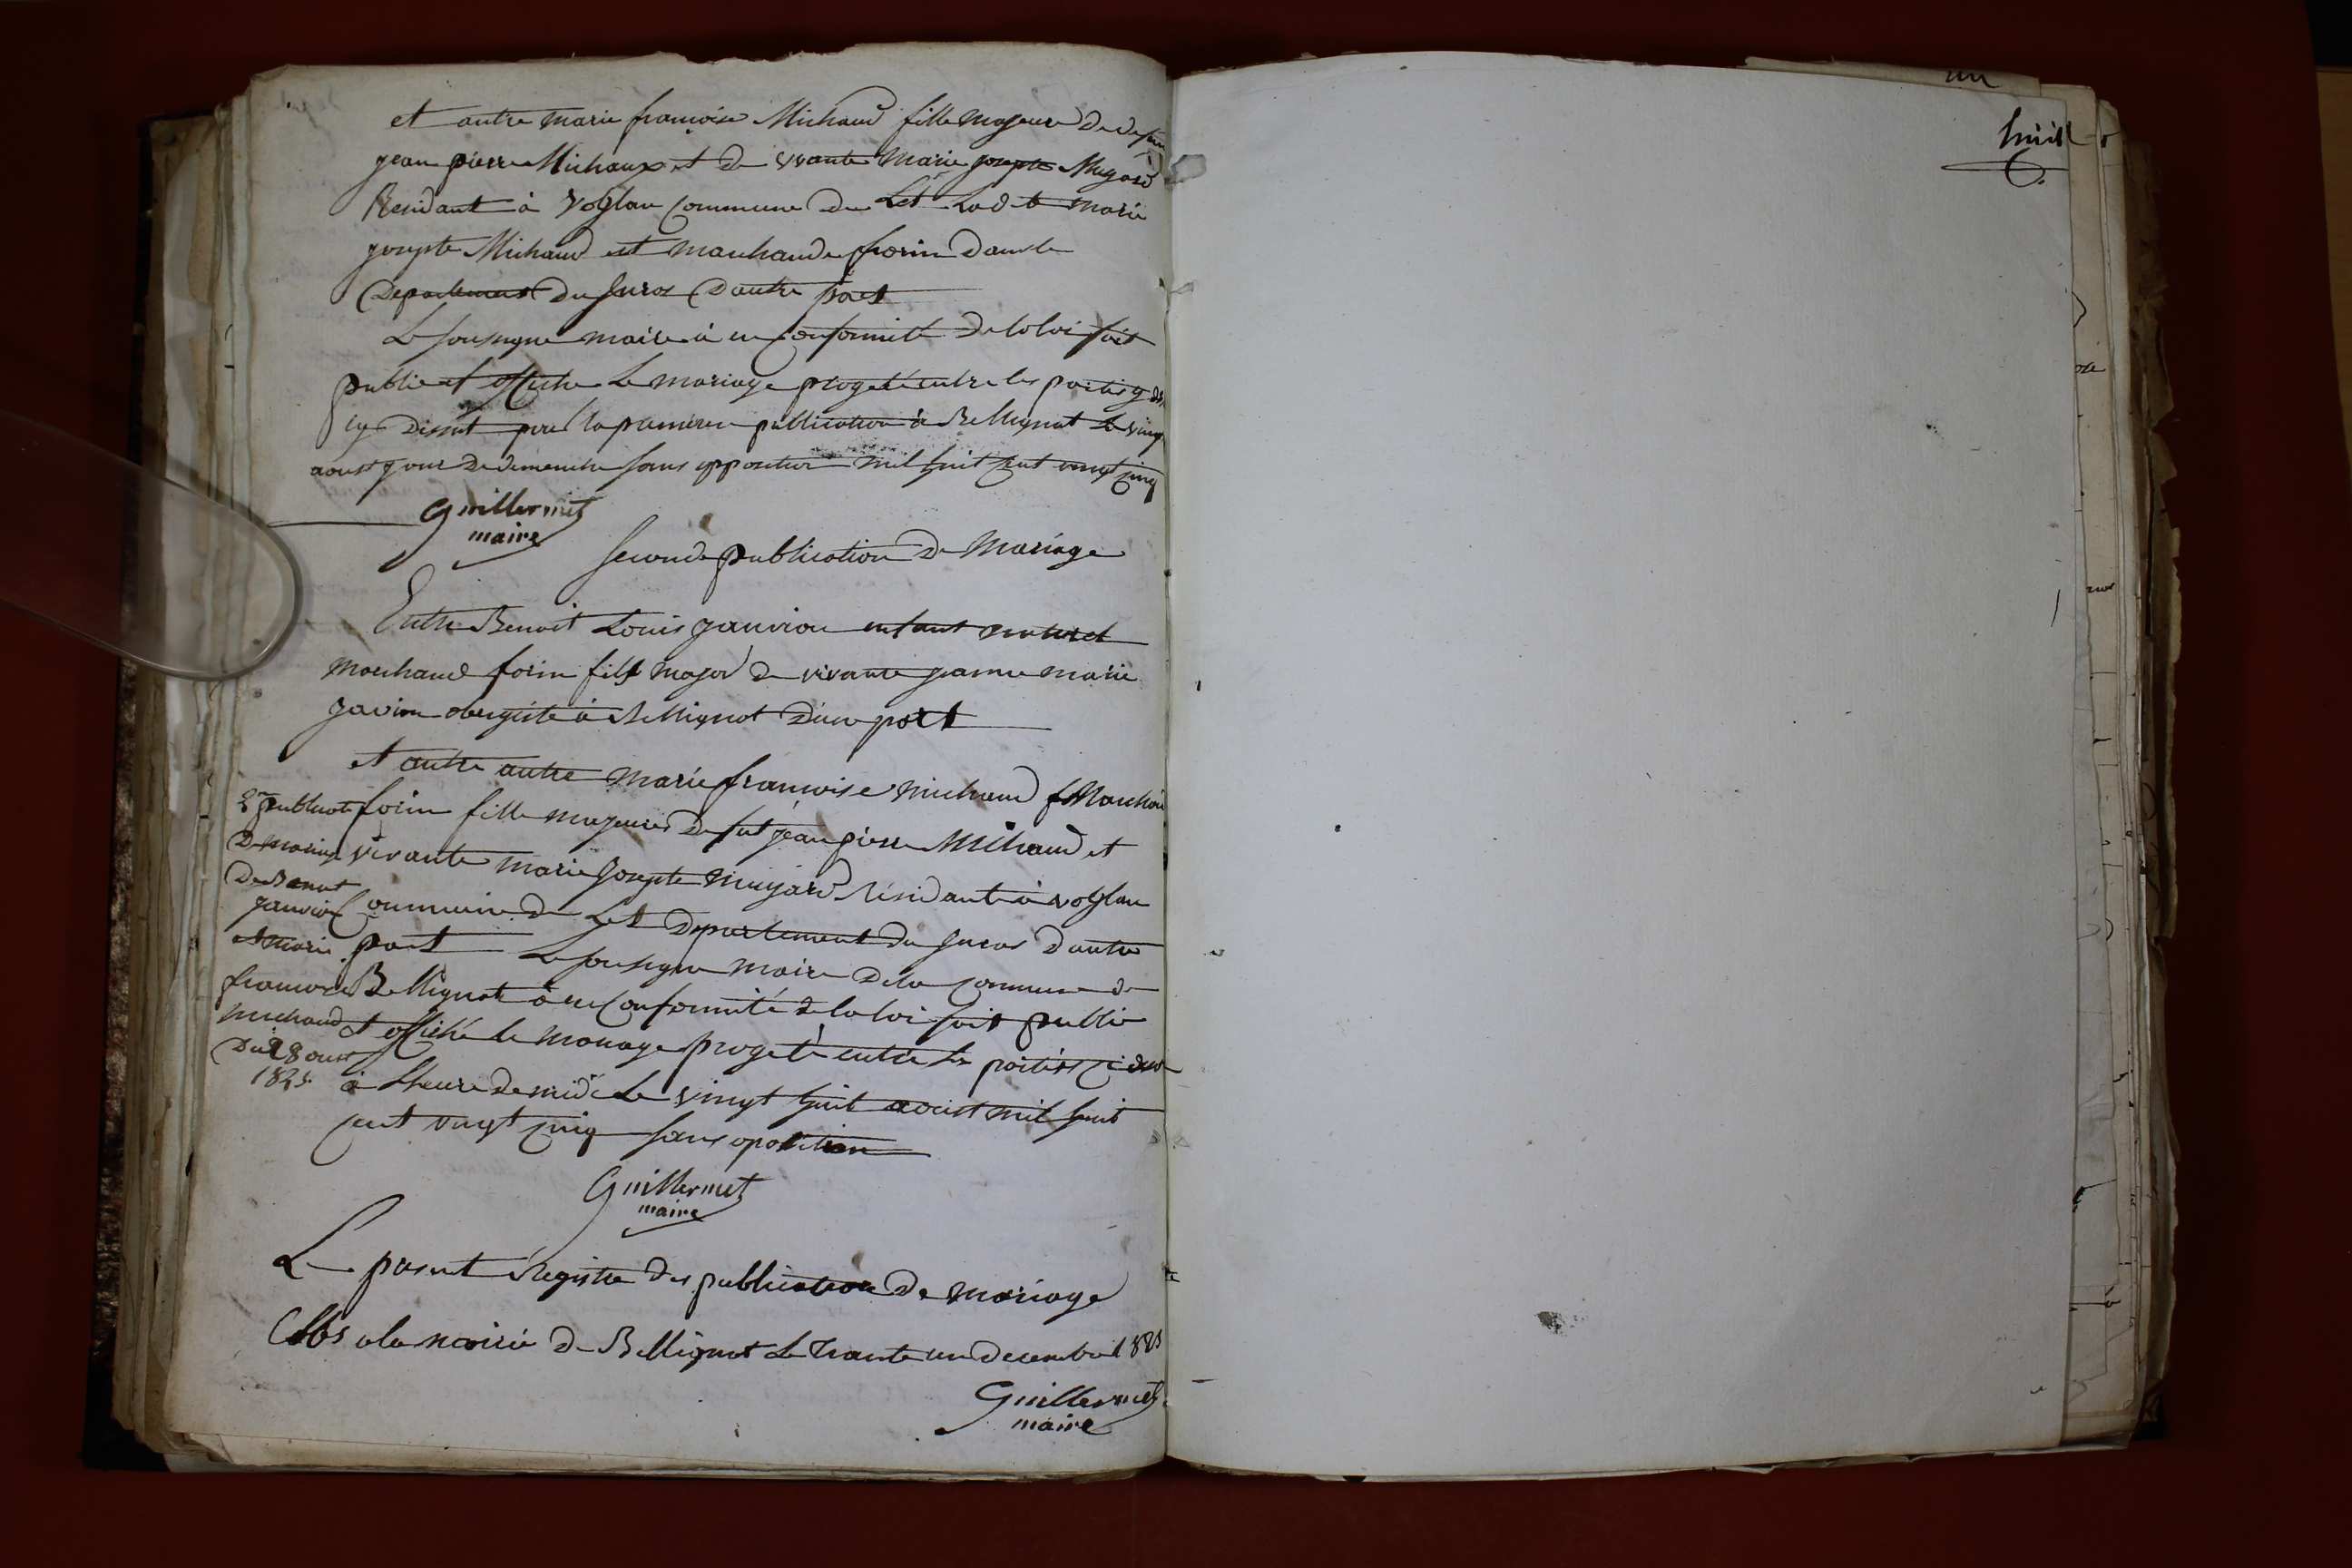 et autre marie francoise Michaud fille majeure de defun
jean pierre Michaux et de vivante marie josepte Mugard
Residant à Voglan commune de Let Ladt marie
josepte Michaud est marchande forin dans le
Departement du Juras Dautre part
Le sousigne maire à en conformité de la loi fait
publié et affiché Le mariage progeté entre les partis
cy dessut pour la premiere publication à Bellignat Le vingt
aoust jour de dimenche sans opposition mil huit cent vingt cinq
Guillermet
maire
seconde publication De Mariage
Entre Benoit Louis janvion enfant naturel
marchand forin fils major de vivante jeanne marie
javion obergiste à Bellignat D'une part
et autre autre marie francoise michaud Marchan
forin fille majeure de fut jean pierre Michaud et
vivante marie josepte mugard Résidante à voglan
commune de Let Departement du Juras Dautre
part Le sousigne maire De la commune de
Bellignat à en conformité de la loi fait publié
et affiché le mariage progeté entre les partiess ci dessu
à Lheure de midi Le vingt huit aoust mil huit
cent vingt cinq sans oposition
2me publicati
De mariage
De Benoit
janvion
et marie
francoise
michaud
Du 28 oust
1825
Guillermet
maire
Le present Registre des publication De mariage
Clos a la mairie De Bellignat Le Trante un decembre 1825
Guillermet
maire
un
huit